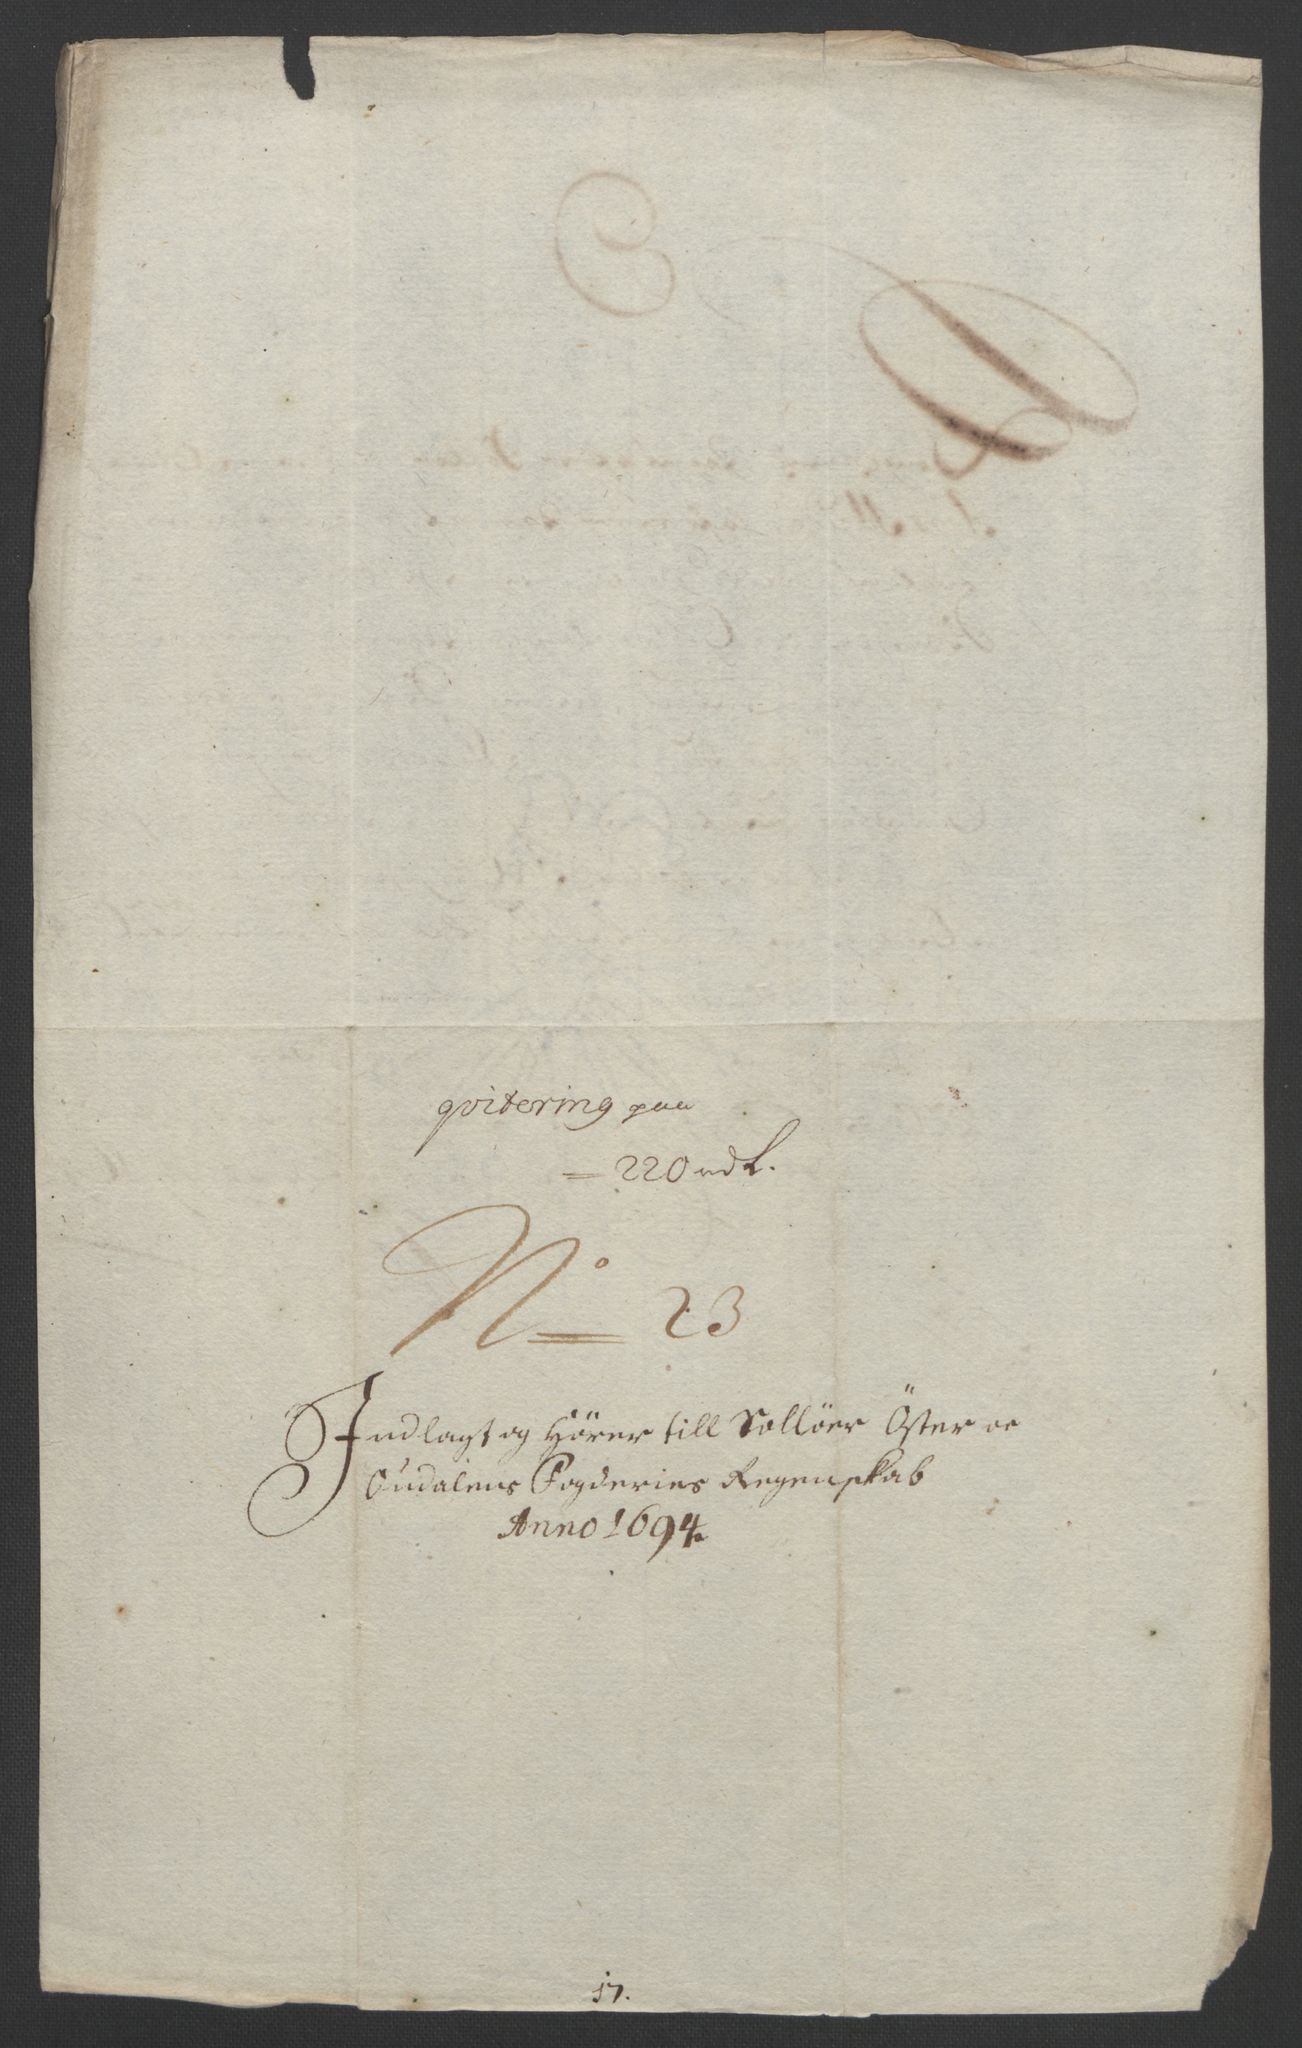 qvitering paa
= 220 rdl.
No 23
Indlagt og Hörer till Sollöer Öster oc
Oudalens Fogderies Regenskab
Anno 1694.
17.